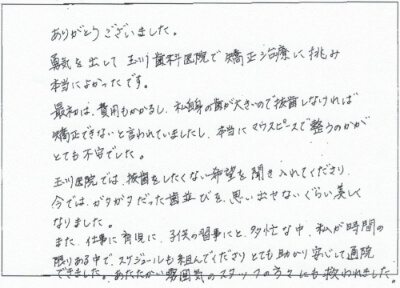 ありがとうございました。
勇気を出して玉川歯科医院で矯正治療に挑み
本当によかったです。
最初は、費用もかかるし、私自身の歯が大きいので抜歯しなければ
矯正できないと言われていましたし、本当にマウスピースで整うのかが
とても不安でした。
玉川医院では、抜歯をしたくない希望を聞き入れてくださり、
今では、ガタガタだった歯並びを、思い出せないぐらい美しく
なりました。
また、仕事に育児に、子供の習事にと、多忙な中、私が時間の
限りある中で、スケジュールも組んでくださりとても助かり安心して通院
できました。あたたかい雰囲気のスタッフの方々にも救われました。